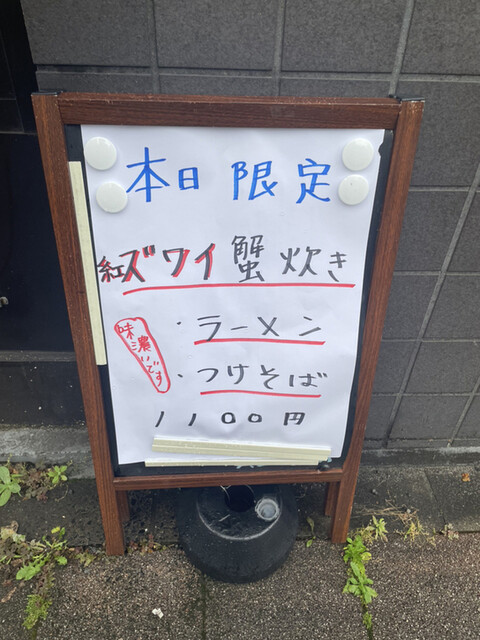 本日 限定
紅ズワイ蟹炊き
・ラーメン
味濃いです
・つけそば
1100円